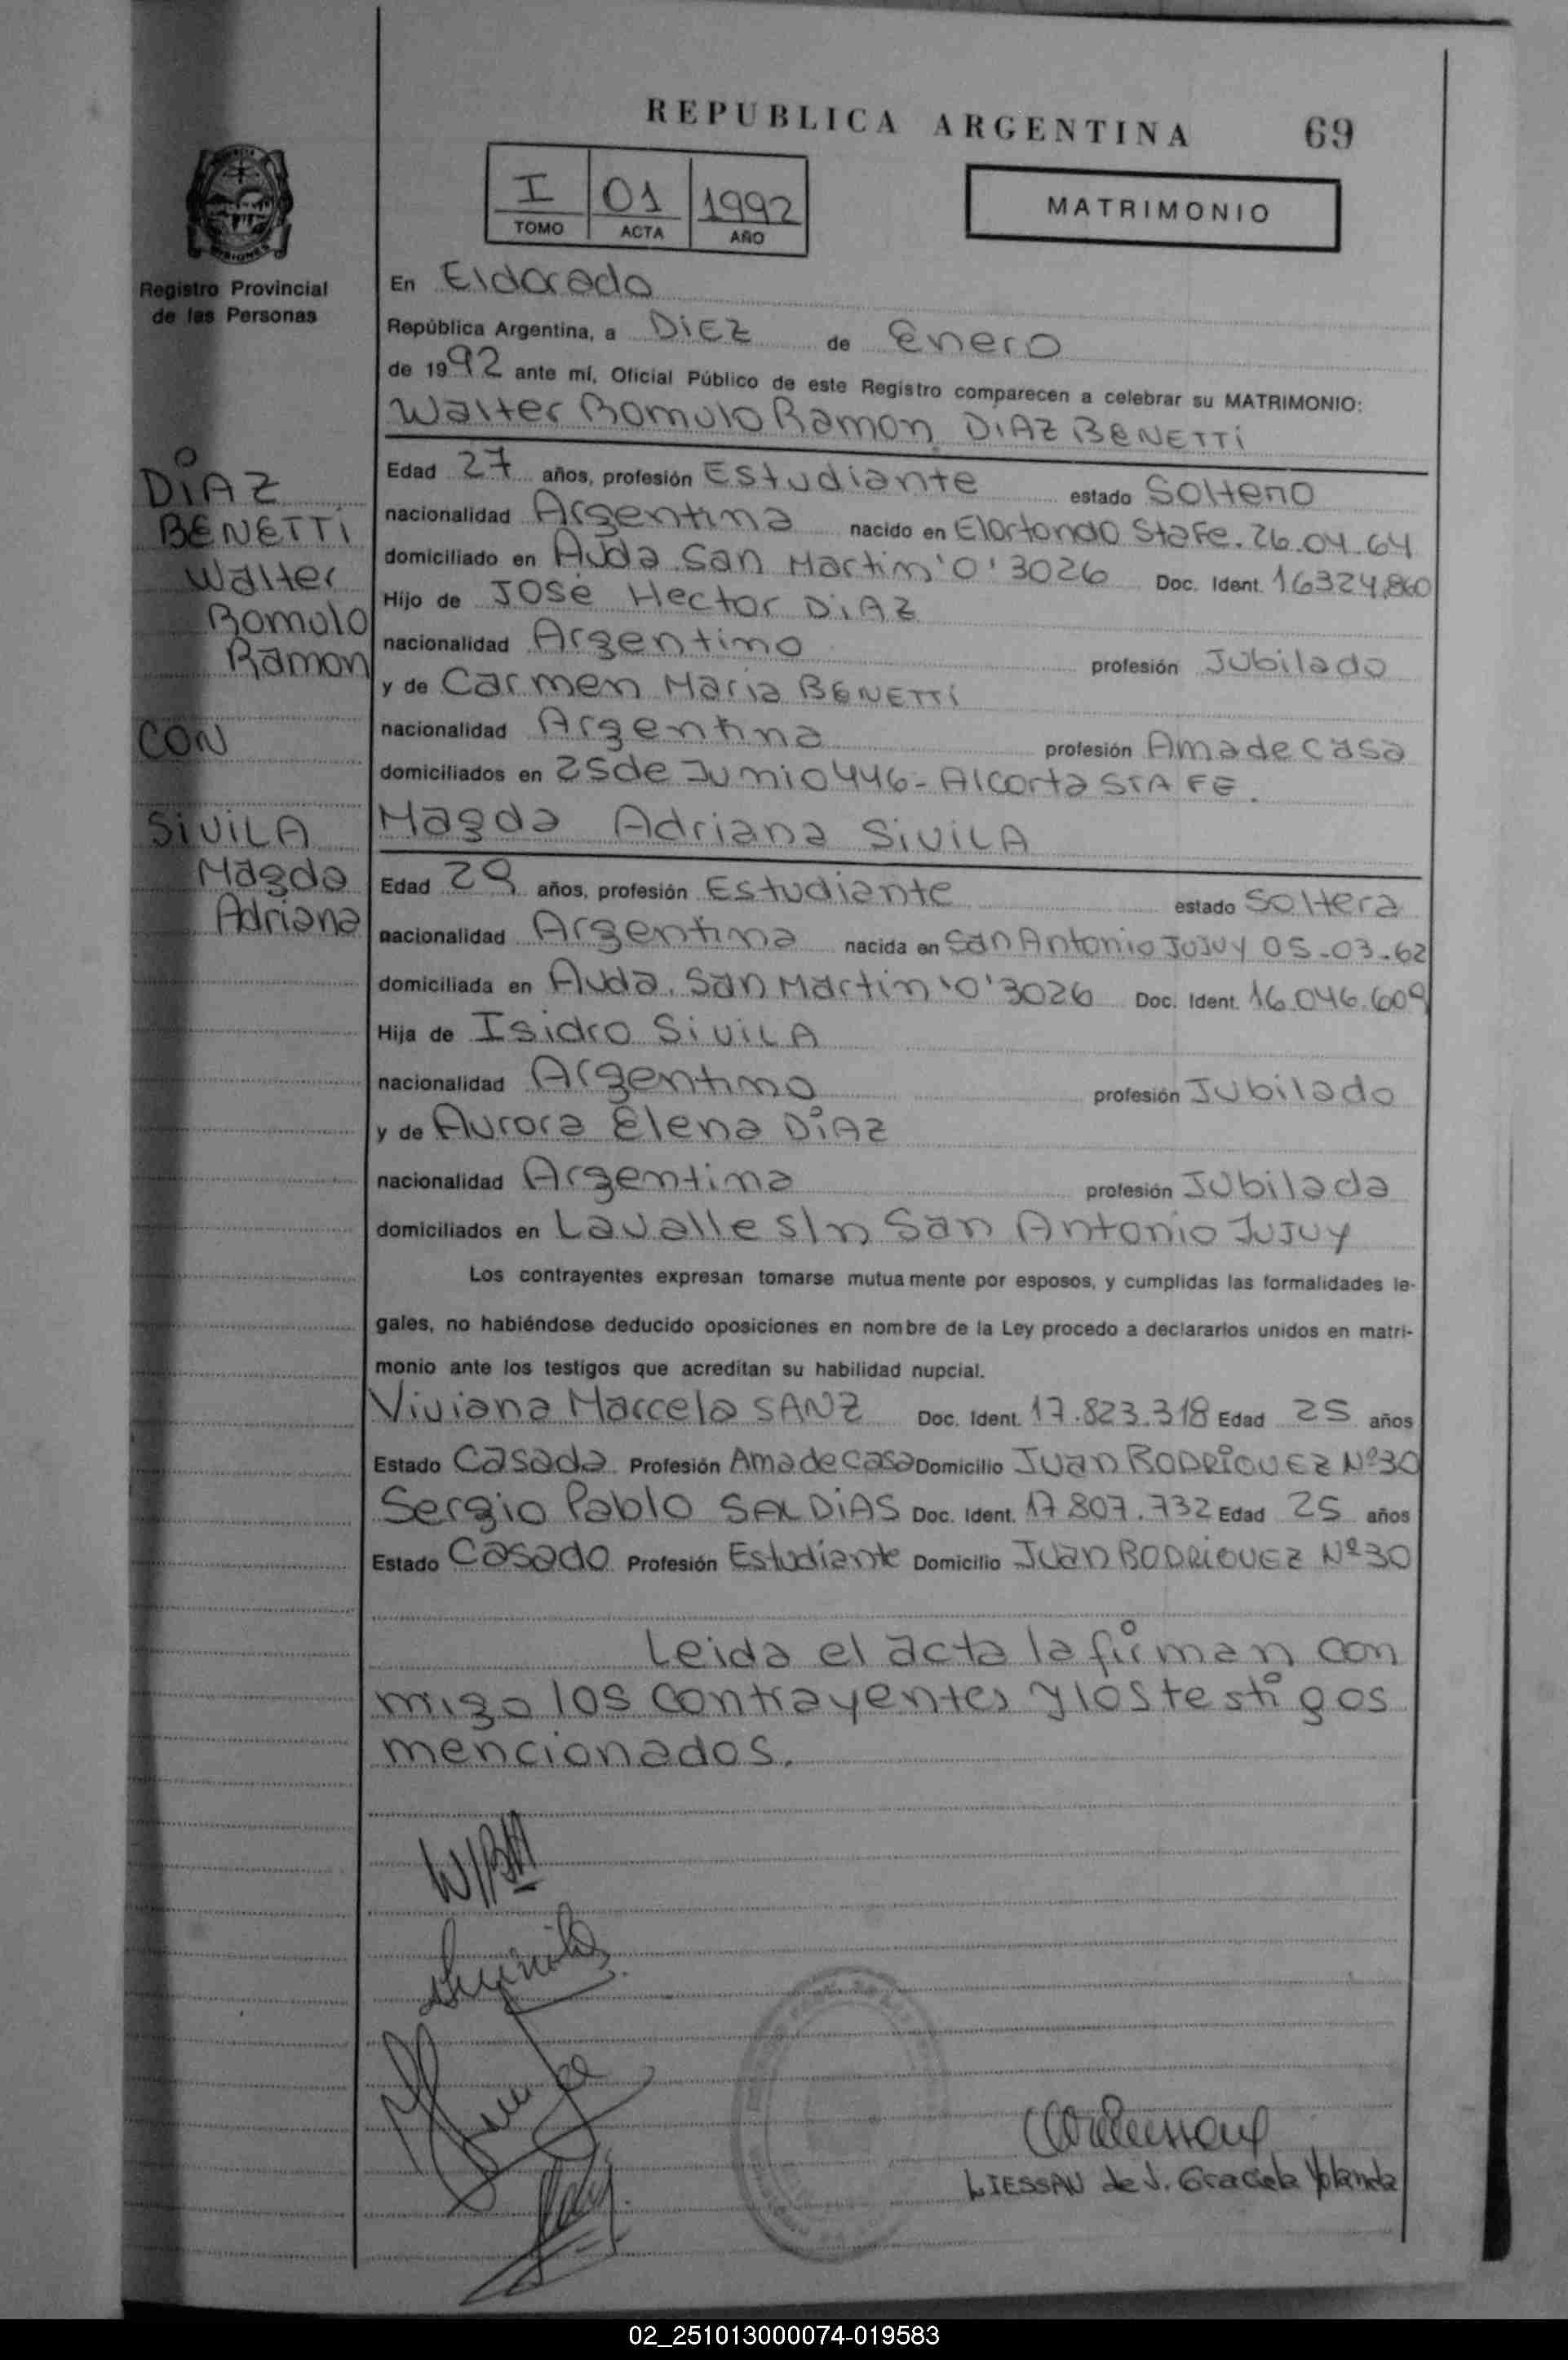 REPUBLICA ARGENTINA 69
I 01 1992
TOMO ACTA AÑO
MATRIMONIO
Registro Provincial
de las Personas
En Eldorado
República Argentina, a Diez de Enero
de 1992 ante mí, Oficial Público de este Registro comparecen a celebrar su MATRIMONIO:
Walter Romulo Ramon DiAZ BENETTi
DiAZ
BENETTi
Walter
Romulo
Ramon
CON
SiViLA
Magda
Adriana
Edad 27 años, profesión Estudiante estado Soltero
nacionalidad Argentina nacido en Elortondo StaFe. 26.04.64
domiciliado en Avda San Martin 'O' 3026 Doc. Ident. 16324.860
Hijo de José Hector DiAZ
nacionalidad Argentino profesión Jubilado
y de Carmen Maria BENETTi
nacionalidad Argentina profesión Ama de casa
domiciliados en 25 de Junio 446 - Alcorta STA FE.
Magda Adriana SiViLA
Edad 29 años, profesión Estudiante estado Soltera
nacionalidad Argentina nacida en San Antonio Jujuy 05-03-62
domiciliada en Avda. San Martin 'O' 3026 Doc. Ident. 16.046.609
Hija de Isidro SiViLA
nacionalidad Argentino profesión Jubilado
y de Aurora Elena DiAZ
nacionalidad Argentina profesión Jubilada
domiciliados en Lavalle s/n San Antonio Jujuy
Los contrayentes expresan tomarse mutuamente por esposos, y cumplidas las formalidades le-
gales, no habiéndose deducido oposiciones en nombre de la Ley procedo a declararlos unidos en matri-
monio ante los testigos que acreditan su habilidad nupcial.
Viviana Marcela SANZ Doc. Ident. 17.823.318 Edad 25 años
Estado Casada Profesión Ama de casa Domicilio Juan RODRIGUEZ Nº30
Sergio Pablo SALDiAS Doc. Ident. 17.807.732 Edad 25 años
Estado Casado Profesión Estudiante Domicilio Juan RODRIGUEZ Nº30
Leida el acta la firman con
migo los contrayentes y los testigos
mencionados.
LIESSAU de V. Graciela Yolanda
02_251013000074-019583